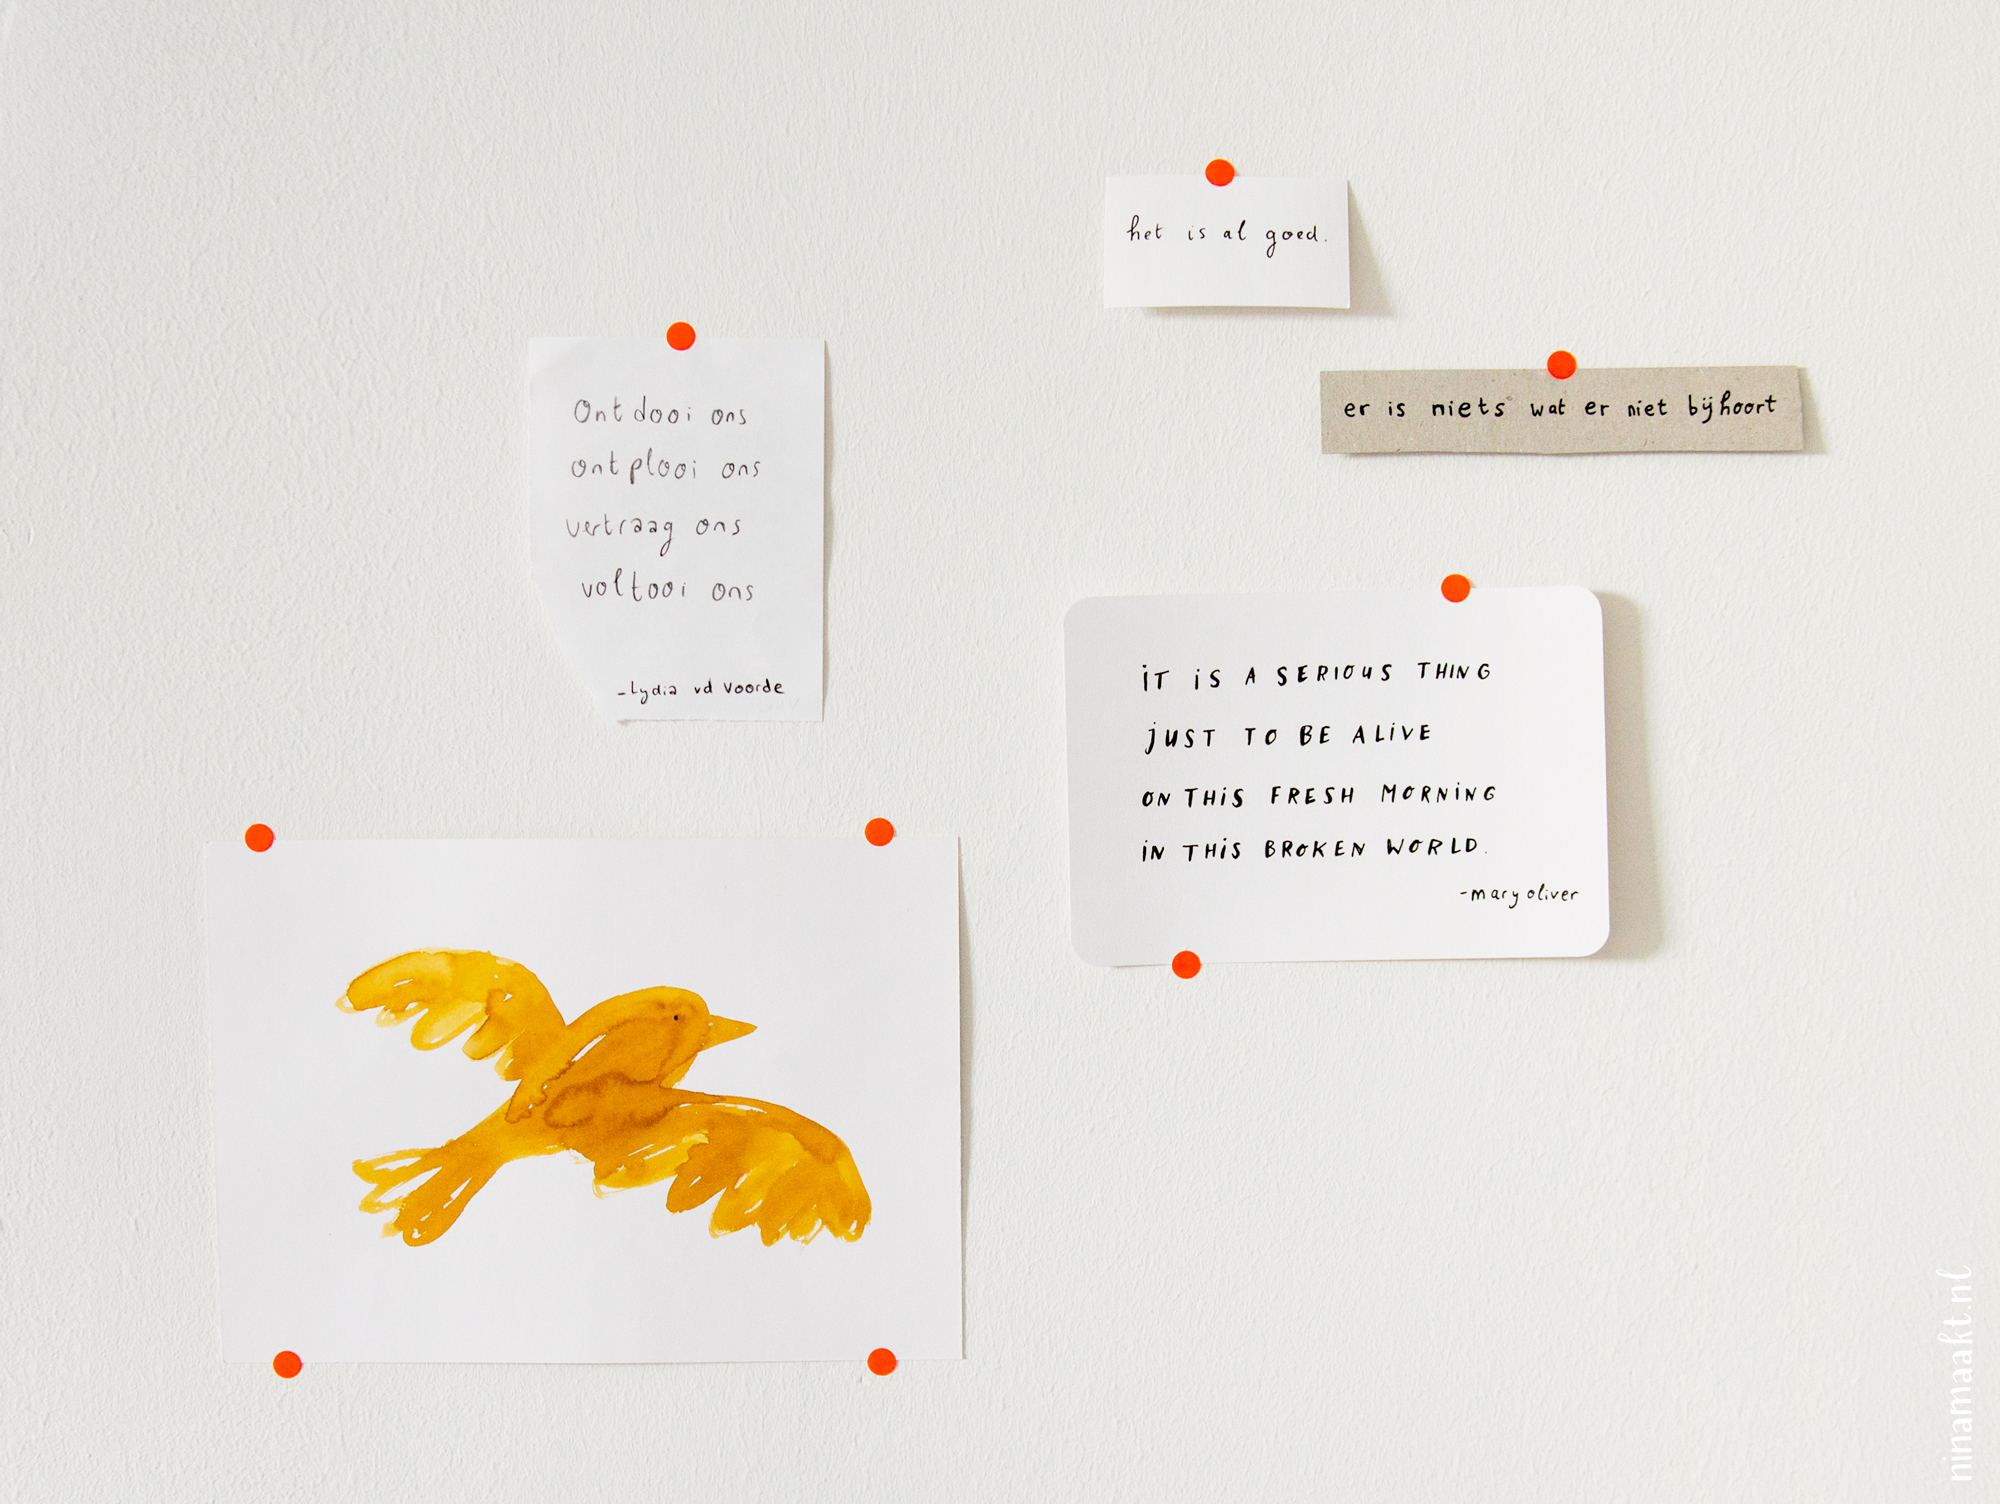 het is al goed.
er is niets wat er niet bijhoort
Ontdooi ons
ontplooi ons
vertraag ons
voltooi ons
-Lydia vd Voorde
iT iS A SERIOUS THING
jUST TO BE ALiVE
ON THiS FRESH MORNiNG
iN THiS BROKEN WORLD.
-mary oliver
ninamaakt.nl